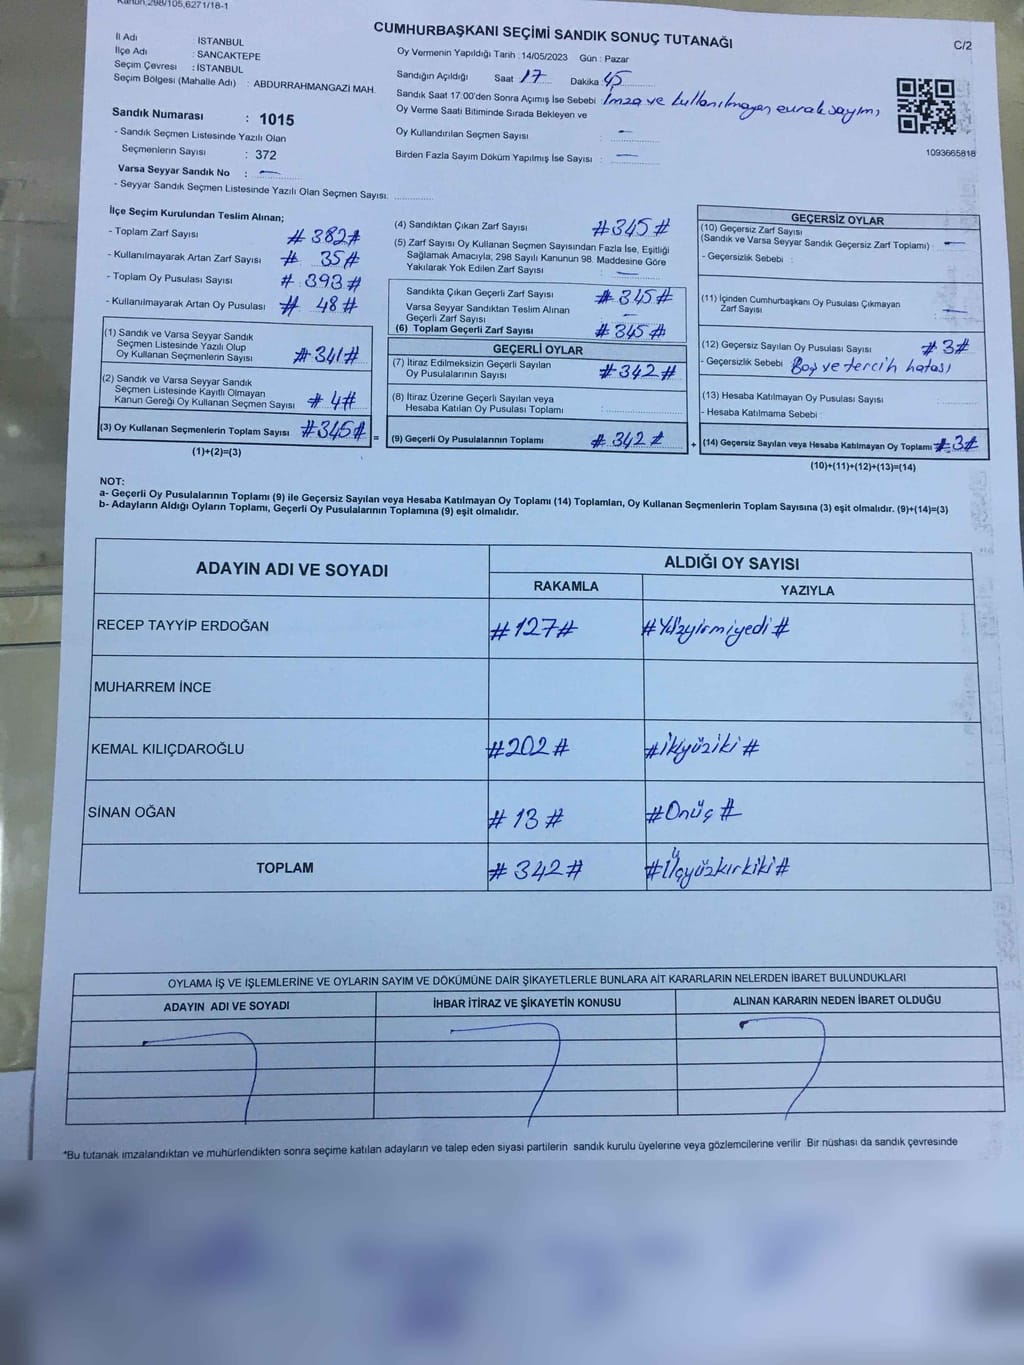 Kanun,298/105,6271/18-1
CUMHURBAŞKANI SEÇİMİ SANDIK SONUÇ TUTANAĞI
C/2
İl Adı : İSTANBUL
İlçe Adı : SANCAKTEPE
Seçim Çevresi : İSTANBUL
Seçim Bölgesi (Mahalle Adı) : ABDURRAHMANGAZİ MAH.
Oy Vermenin Yapıldığı Tarih : 14/05/2023 Gün : Pazar
Sandığın Açıldığı Saat 17 Dakika 45
Sandık Saat 17:00'den Sonra Açımış İse Sebebi : İmza ve kullanılmayan evrak sayımı
Oy Verme Saati Bitiminde Sırada Bekleyen ve
Oy Kullandırılan Seçmen Sayısı : —
Birden Fazla Sayım Döküm Yapılmış İse Sayısı : —
1093665818
Sandık Numarası : 1015
- Sandık Seçmen Listesinde Yazılı Olan
Seçmenlerin Sayısı : 372
Varsa Seyyar Sandık No : —
- Seyyar Sandık Seçmen Listesinde Yazılı Olan Seçmen Sayısı:
İlçe Seçim Kurulundan Teslim Alınan;
- Toplam Zarf Sayısı # 382 #
- Kullanılmayarak Artan Zarf Sayısı # 35 #
- Toplam Oy Pusulası Sayısı # 393 #
- Kullanılmayarak Artan Oy Pusulası # 48 #
(1) Sandık ve Varsa Seyyar Sandık
Seçmen Listesinde Yazılı Olup
Oy Kullanan Seçmenlerin Sayısı # 341 #
(2) Sandık ve Varsa Seyyar Sandık
Seçmen Listesinde Kayıtlı Olmayan
Kanun Gereği Oy Kullanan Seçmen Sayısı # 4 #
(3) Oy Kullanan Seçmenlerin Toplam Sayısı # 345 #
(1)+(2)=(3)
(4) Sandıktan Çıkan Zarf Sayısı # 345 #
(5) Zarf Sayısı Oy Kullanan Seçmen Sayısından Fazla İse, Eşitliği
Sağlamak Amacıyla, 298 Sayılı Kanunun 98. Maddesine Göre
Yakılarak Yok Edilen Zarf Sayısı : —
Sandıkta Çıkan Geçerli Zarf Sayısı # 345 #
Varsa Seyyar Sandıktan Teslim Alınan
Geçerli Zarf Sayısı : —
(6) Toplam Geçerli Zarf Sayısı # 345 #
GEÇERLİ OYLAR
(7) İtiraz Edilmeksizin Geçerli Sayılan
Oy Pusulalarının Sayısı # 342 #
(8) İtiraz Üzerine Geçerli Sayılan veya
Hesaba Katılan Oy Pusulası Toplamı :
= (9) Geçerli Oy Pusulalarının Toplamı # 342 #
GEÇERSİZ OYLAR
(10) Geçersiz Zarf Sayısı
(Sandık ve Varsa Seyyar Sandık Geçersiz Zarf Toplamı) : —
- Geçersizlik Sebebi :
(11) İçinden Cumhurbaşkanı Oy Pusulası Çıkmayan
Zarf Sayısı : —
(12) Geçersiz Sayılan Oy Pusulası Sayısı # 3 #
- Geçersizlik Sebebi Boş ve tercih hatası
(13) Hesaba Katılmayan Oy Pusulası Sayısı :
- Hesaba Katılmama Sebebi :
+ (14) Geçersiz Sayılan veya Hesaba Katılmayan Oy Toplamı # 3 #
(10)+(11)+(12)+(13)=(14)
NOT:
a- Geçerli Oy Pusulalarının Toplamı (9) ile Geçersiz Sayılan veya Hesaba Katılmayan Oy Toplamı (14) Toplamları, Oy Kullanan Seçmenlerin Toplam Sayısına (3) eşit olmalıdır. (9)+(14)=(3)
b- Adayların Aldığı Oyların Toplamı, Geçerli Oy Pusulalarının Toplamına (9) eşit olmalıdır.
ADAYIN ADI VE SOYADI ALDIĞI OY SAYISI
RAKAMLA YAZIYLA
RECEP TAYYİP ERDOĞAN # 127 # # Yüzyirmiyedi #
MUHARREM İNCE
KEMAL KILIÇDAROĞLU # 202 # # ikiyüziki #
SİNAN OĞAN # 13 # # Onüç #
TOPLAM # 342 # # Üçyüzkırkiki #
OYLAMA İŞ VE İŞLEMLERİNE VE OYLARIN SAYIM VE DÖKÜMÜNE DAİR ŞİKAYETLERLE BUNLARA AİT KARARLARIN NELERDEN İBARET BULUNDUKLARI
ADAYIN ADI VE SOYADI İHBAR İTİRAZ VE ŞİKAYETİN KONUSU ALINAN KARARIN NEDEN İBARET OLDUĞU
*Bu tutanak imzalandıktan ve mühürlendikten sonra seçime katılan adayların ve talep eden siyasi partilerin sandık kurulu üyelerine veya gözlemcilerine verilir Bir nüshası da sandık çevresinde